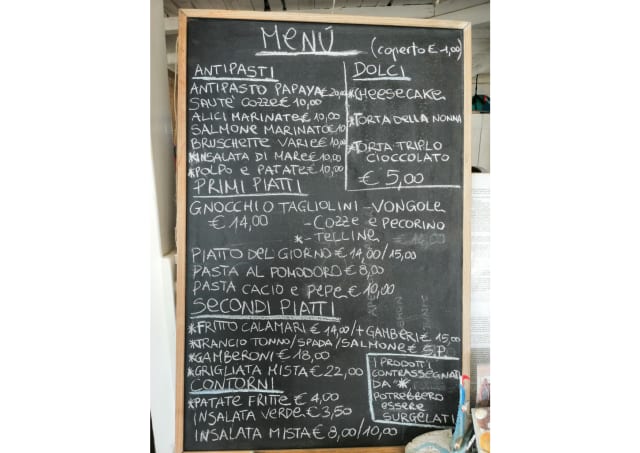 MENÚ
(coperto € 1,00)
ANTIPASTI
ANTIPASTO PAPAYA € 20,00
SAUTE' COZZE € 10,00
ALICI MARINATE € 10,00
SALMONE MARINATO € 10
BRUSCHETTE VARIE € 10,00
*INSALATA DI MARE € 10,00
*POLPO e PATATE € 10,00
DOLCI
*CHEESECAKE
*TORTA DELLA NONNA
*TORTA TRIPLO
CIOCCOLATO
€ 5,00
PRIMI PIATTI
GNOCCHI O TAGLIOLINI - VONGOLE
€ 14,00 - COZZE e PECORINO
*- TELLINE
PIATTO DEL GIORNO € 14,00/15,00
PASTA AL POMODORO € 8,00
PASTA CACIO e PEPE € 10,00
SECONDI PIATTI
*FRITTO CALAMARI € 14,00/+GAMBERI € 15,00
*TRANCIO TONNO/SPADA/SALMONE € S.P.
*GAMBERONI € 18,00
*GRIGLIATA MISTA € 22,00
CONTORNI
*PATATE FRITTE € 4,00
INSALATA VERDE € 3,50
INSALATA MISTA € 8,00/10,00
I PRODOTTI
CONTRASSEGNATI
DA *
POTREBBERO
ESSERE
SURGELATI